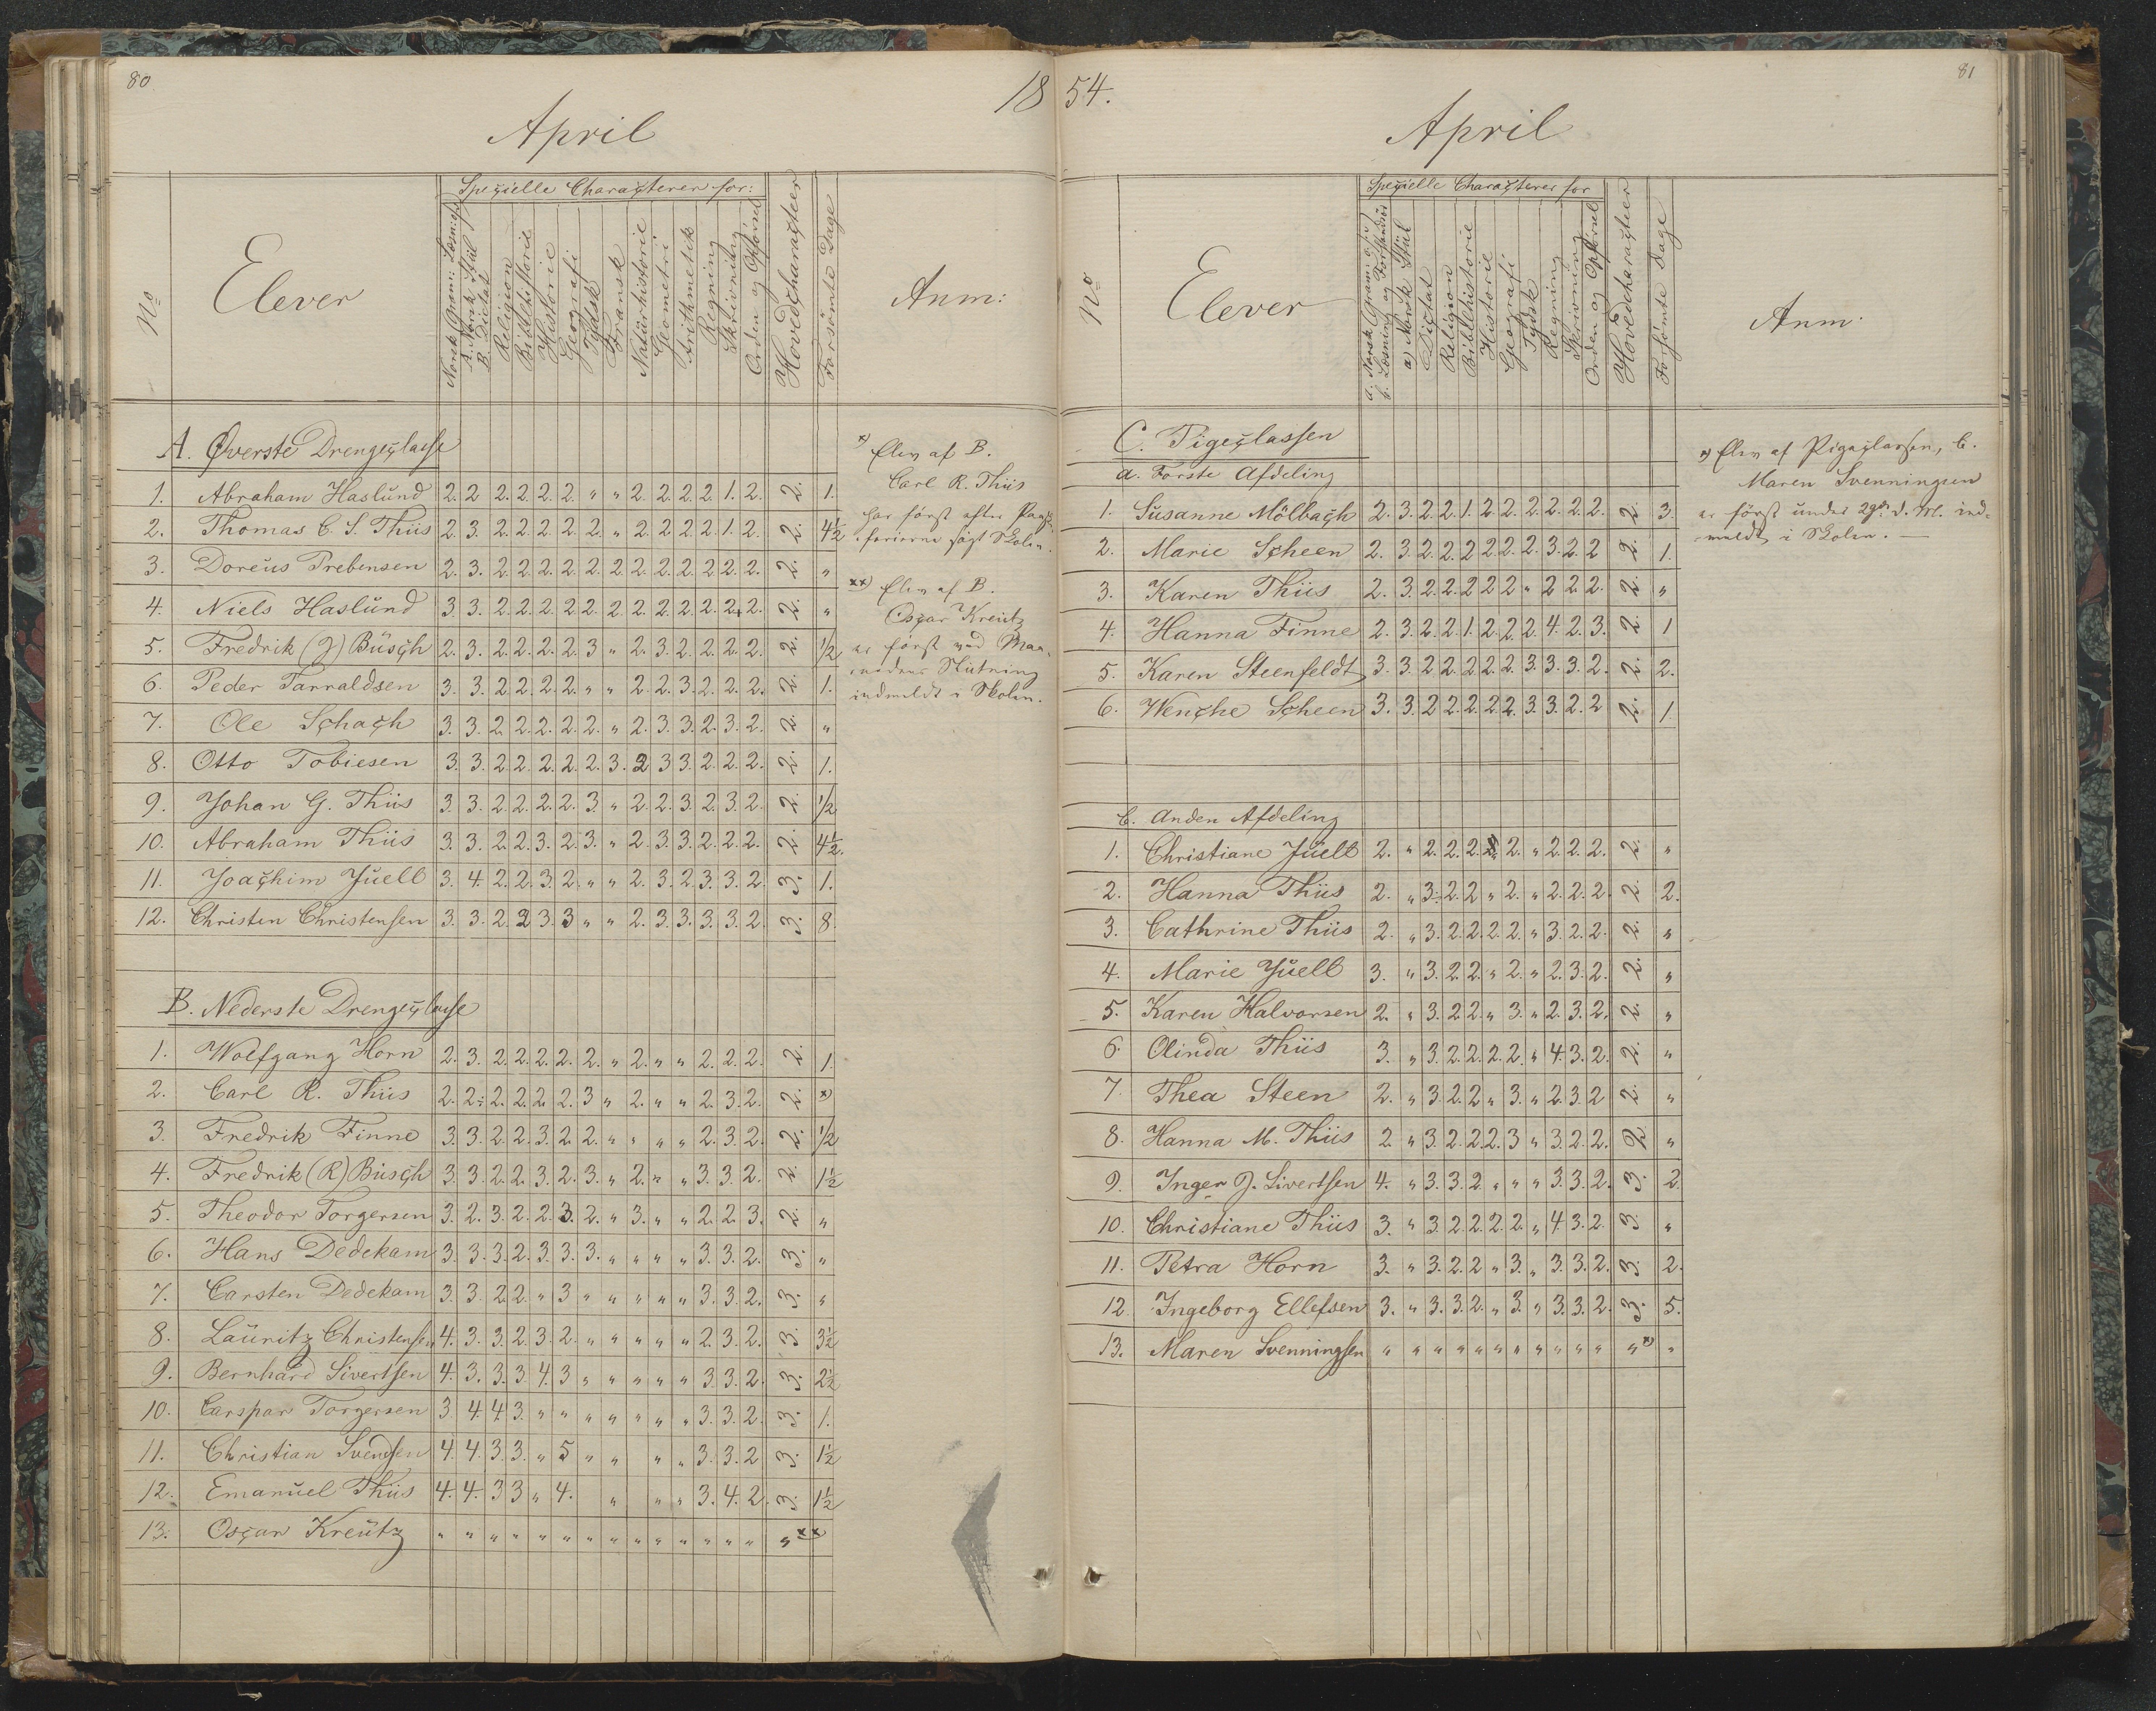 80
18
April
No
Elever
Specielle Characterer for:
Norsk Gram: Læsning
A. Norsk Stül
B. Dictat
Religion
Bibelhistorie
Historie
Geografi
Tydsk
Fransk
Natürhistorie
Geometri
Arithmetik
Regning
Skrivning
Orden og Opførsel
Hovedcharacteer
Forsömte Dage
Anm:
A. Øverste Drengeclasse
1. Abraham Haslund 2. 2 2. 2. 2. 2. " " 2. 2. 2. 2. 1. 2. 2. 1.
2. Thomas C. S. Thiis 2. 3. 2. 2. 2. 2. 2. " 2. 2. 2. 2. 1. 2. 2. 4½
3. Doreus Prebensen 2. 3. 2. 2. 2. 2. 2. 2. 2. 2. 2. 2. 2. 2. 2. "
4. Niels Haslund 3. 3. 2. 2. 2. 2. 2. 2. 2. 2. 2. 2. 2. 2. 2. "
5. Fredrik (J) Büsch 2. 3. 2. 2. 2. 2. 3 " 2. 3. 2. 2. 2. 2. 2. ½
6. Peder Tarraldsen 3. 3. 2. 2. 2. 2. " " 2. 2. 3. 2. 2. 2. 2. 1.
7. Ole Schach 3. 3. 2. 2. 2. 2. 2. " 2. 3. 3. 2. 3. 2. 2. "
8. Otto Tobiesen 3. 3. 2. 2. 2. 2. 2. 3. 2 3 3. 2. 2. 2. 2. 1.
9. Johan G. Thiis 3. 3. 2. 2. 2. 2. 3. " 2. 2. 3. 2. 3. 2. 2. ½
10. Abraham Thiis 3. 3. 2. 2. 3. 2. 3. " 2. 3. 3. 2. 2. 2. 2. 4½.
11. Joachim Juell 3. 4. 2. 2. 3. 2. " " 2. 3. 2. 3. 3. 2. 3. 1.
12. Christen Christensen 3. 3. 2. 2 3. 3 " " 2. 3. 3. 3. 3. 2. 3. 8.
B. Nederste Drengeclasse
1. Wolfgang Horn 2. 3. 2. 2. 2. 2. 2. " 2. " " 2. 2. 2. 2. 1.
2. Carl R. Thiis 2. 2. 2. 2. 2. 2. 3 " 2. " " 2. 3. 2. 2. x)
3. Fredrik Finne 3. 3. 2. 2. 3. 2. 2. " " " " 2. 3. 2. 2. ½
4. Fredrik (R) Büsch 3. 3. 2. 2. 3. 2. 3. " 2. " " 3. 3. 2. 2. 1½
5. Theodor Torgersen 3. 2. 3. 2. 2. 3. 2. " 3. " " 2. 2. 3. 2. "
6. Hans Dedekam 3. 3. 3. 2. 3. 3. 3. " " " " 3. 3. 2. 3. "
7. Carsten Dedekam 3. 3. 2. 2. " 3 " " " " " 3. 3. 2. 3. "
8. Lauritz Christensen 4. 3. 3. 2. 3. 2. " " " " " 2. 3. 2. 3. 3½
9. Bernhard Sivertsen 4. 3. 3. 3. 4. 3 " " " " " 3. 3. 2. 3. 2½
10. Carspar Torgersen 3. 4. 4. 3. " " " " " " " 3. 3. 2. 3. 1.
11. Christian Svendsen 4. 4. 3. 3. " 5 " " " " 3. 3. 2 3. 1½
12. Emanuel Thiis 4. 4. 3 3 " 4. " " " 3. 4. 2. 3. 1½
13. Oscar Kreutz " " " " " " " " " " " " " " " xx
x) Elev af B.
Carl R. Thiis
har först efter Paaske-
ferierne sögt Skolen.
xx) Elev af B.
Oscar Kreutz
er först ved Maa-
nedens Slutning
indmeldt i Skolen.
54.
81
April
No
Elever
Specielle Characterer for
a. Norsk Gram: og
b. Læsning og Forstand
a) Norsk Stül
Dictat
Religion
Bibelhistorie
Historie
Geografi
Tydsk
Regning
Skrivning
Orden og Opførsel
Hovedcharacteer
Forsömte Dage
Anm.
C. Pigeclassen
a. Forste Afdeling
1. Susanne Mölbach 2. 3. 2. 2. 1. 2. 2. 2. 2. 2. 2. 2. 3.
2. Marie Scheen 2. 3. 2. 2. 2. 2. 2. 2. 3. 2. 2 2. 1.
3. Karen Thiis 2. 3. 2. 2. 2. 2 2 " 2 2. 2. 2. "
4. Hanna Finne 2. 3. 2. 2. 1. 2. 2. 2. 4. 2. 3. 2. 1
5. Karen Steenfeldt 3. 3. 2. 2. 2. 2. 2. 3. 3. 3. 2. 2. 2.
6. Wenche Scheen 3. 3. 2 2. 2. 2. 2. 3. 3. 2. 2 2. 1.
b. Anden Afdeling
1. Christiane Juell 2. " 2. 2. 2. " 2. " 2. 2. 2. 2. "
2. Hanna Thiis 2. " 3. 2. 2 " 2. " 2. 2. 2. 2. 2.
3. Cathrine Thiis 2. " 3. 2. 2. 2. 2. " 3. 2. 2. 2. "
4. Marie Juell 3. " 3. 2. 2. " 2. " 2. 3. 2. 2. "
5. Karen Halvorsen 2. " 3. 2. 2. " 3. " 2. 3. 2. 2. "
6. Olinda Thiis 3. " 3. 2. 2. 2. 2. " 4. 3. 2. 2. "
7. Thea Steen 2. " 3. 2. 2. " 3. " 2. 3. 2 2. "
8. Hanna M. Thiis 2 " 3. 2. 2. 2. 3 " 3. 2. 2. 2. "
9. Inger J. Sivertsen 4. " 3. 3. 2. " " " 3. 3. 2. 3. 2.
10. Christiane Thiis 3. " 3. 2. 2. 2. 2. " 4. 3. 2. 3. "
11. Petra Horn 3. " 3. 2. 2. " 3. " 3. 3. 2. 3. 2.
12. Ingeborg Ellefsen 3. " 3. 3. 2. " 3. " 3. 3. 2. 3. 5.
13. Maren Svenningsen " " " " " " " " " " " " x) "
x) Elev af Pigeclassen, b.
Maren Svenningsen
er först under 29de d. M. ind-
meldt i Skolen. —